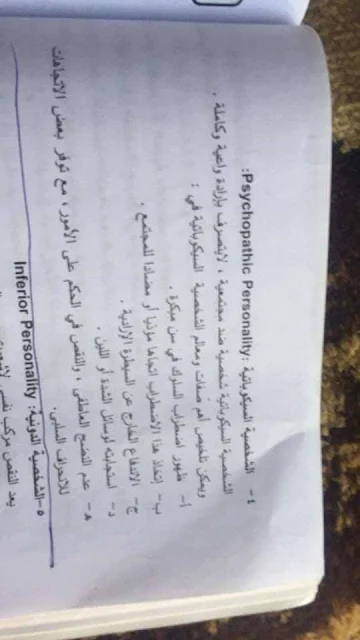 ٤- الشخصية السيكوباتية: Psychopathic Personality:
الشخصية السيكوباتية شخصية ضد مجتمعية ، لايتصرف بإرادة واعية وكاملة .
ويمكن تلخيص أهم صفات ومعالم الشخصية السيكوباتية في :
أ- ظهور اضطراب السلوك في سن مبكرة .
ب- إتخاذ هذا الاضطراب اتجاها مؤذيا أو مضادا للمجتمع .
ج- الاندفاع الخارج عن السيطرة الإرادية .
د- استجابته لوسائل الشدة أو اللين .
هـ- عدم النضج العاطفى ، والنقص في الحكم على الأمور ، مع توفر بعض الاتجاهات
للانحراف السلبى.
٥-الشخصية الدونية: Inferior Personality
يعد النقص مركب نفسي